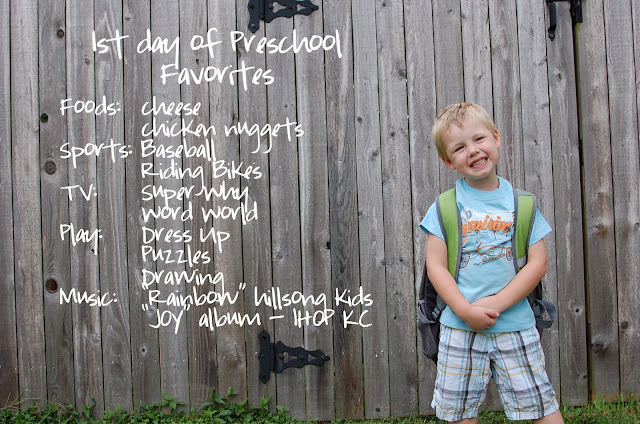 1st day of Preschool
Favorites
Foods: cheese
chicken nuggets
Sports: Baseball
Riding Bikes
TV: Super Why
word world
Play: Dress Up
Puzzles
Drawing
Music: "Rainbow" hillsong kids
"Joy" album - IHOP KC